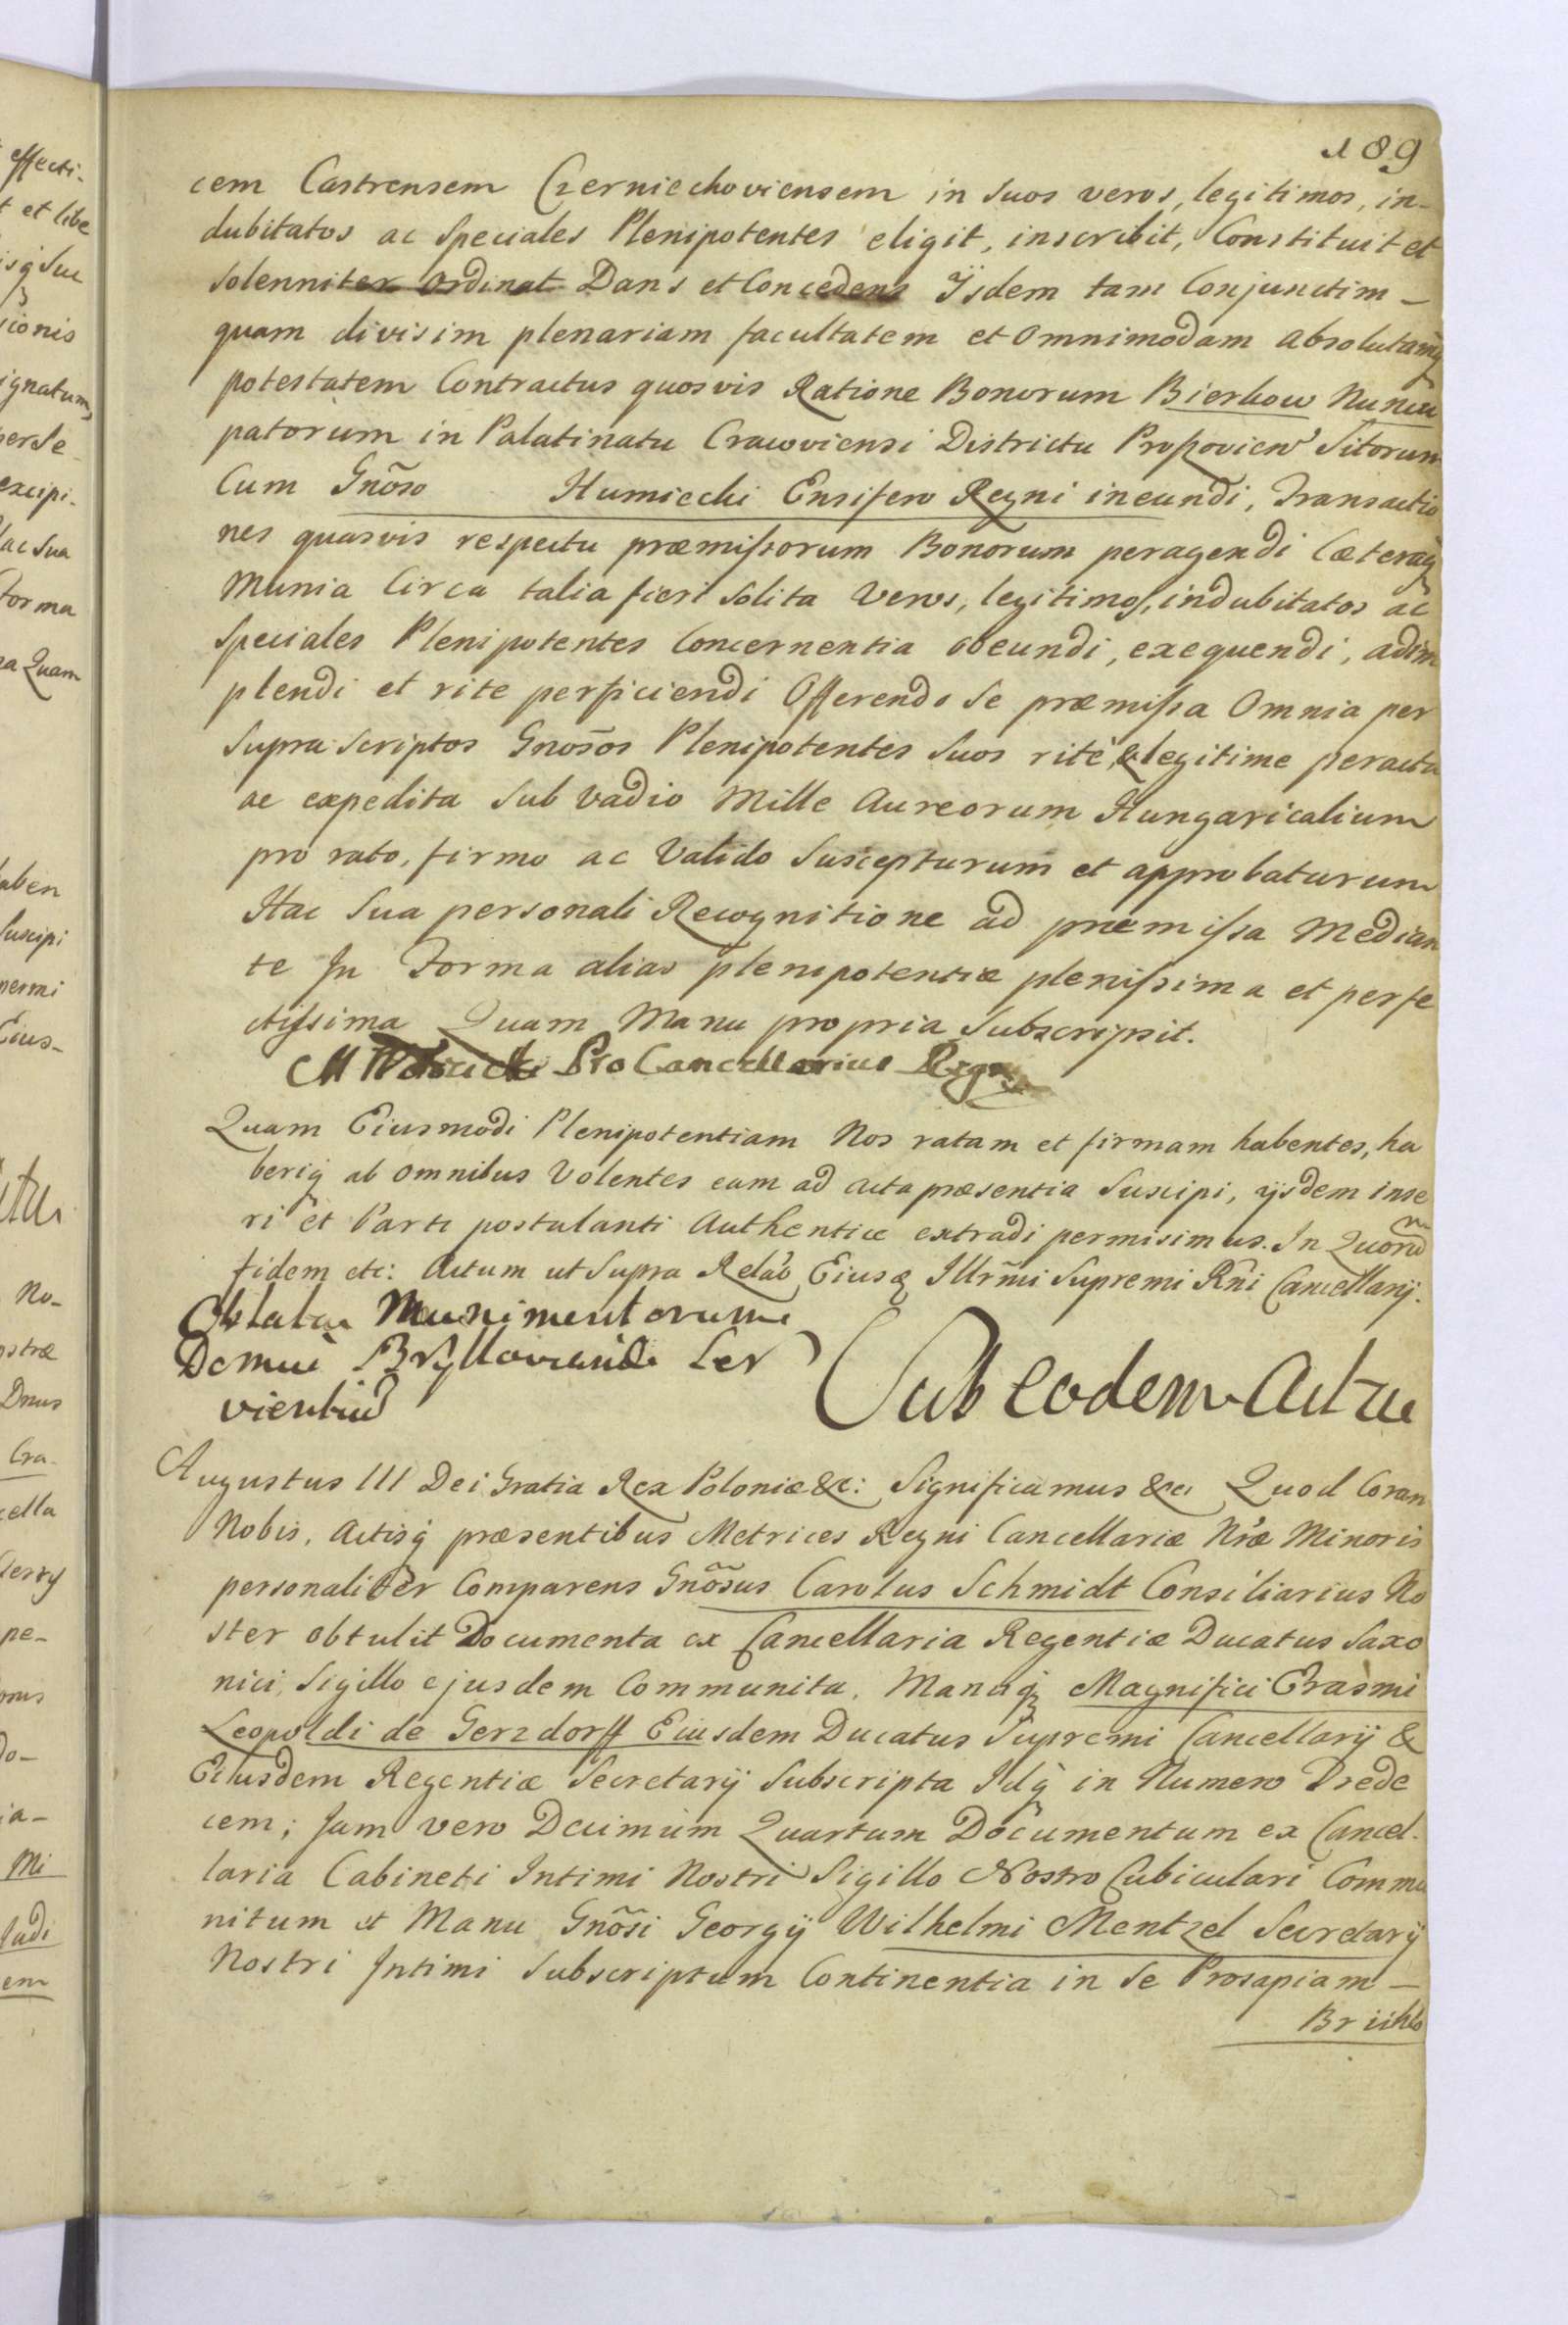 189
cem Castrensem Czerniechoviensem in Suos veros, legitimos, in-
dubitatos ac Speciales Plenipotentes eligit, inscribit, Constituit et
Solenniter Ordinat Dans et Concedens Ÿsdem tam Conjunctim -
quam divisim plenariam facultatem et Omnimodam absolutamq
potestatem Contractus quosvis Ratione Bonorum Bierkow Nuncu
patorum in Palatinatu Cracoviensi Districtu Proszovien Sitorum
Cum Gnõso Humiecki Ensifero Regni ineundi, Transactio
nes quasvis respectu præmissorum Bonorum peragendi Cæteraq
Munia Circa talia fieri Solita Veros, legitimos, indubitatos ac
Speciales Plenipotentes Concernentia obeundi, exequendi, adim
plendi et rite perficiendi Offerendo Se præmissa Omnia per
Supra Scriptos Gnosõs Plenipotentes Suos ritè, & legitime peracta
ac expedita Sub Vadio Mille Aureorum Hungaricalium
pro rato, firmo ac Valido Suscepturum et approbaturum
Hac Sua personali Recognitione ad præmissa Median
te In Forma alias plenipotentiæ plenissima et perfe
ctissima Quam Manu propria Subscripsit.
M Wodzicki ProCancellarius Regni
Quam Eiusmodi Plenipotentiam Nos ratam et firmam habentes, ha
beriq ab omnibus Volentes eam ad acta præsentia Suscipi, ijsdem inse
ri et Parti postulanti Authentice extradi permisimus. In Quorũ
fidem etc: Actum ut Supra Relão Eiusq Illrm̃i Supremi Rñi Cancellarij.
Oblata Munimentorum
Domui Bryllovianæ Ser
vientiũ
Sub Eodem Actu
Augustus III Dei Gratia Rex Poloniæ &c: Significamus &c Quod Coram
Nobis, Actisq præsentibus Metrices Regni Cancellariæ Nræ Minoris
personaliter Comparens Gnõsus Carolus Schmidt Consiliarius No
ster obtulit Documenta ex Cancellaria Regentiæ Ducatus Saxo
nici, Sigillo ejusdem Communita, Manuq Magnifici Erasmi
Leopoldi de Gerzdorff Eiusdem Ducatus Supremi Cancellarij &
Eiusdem Regentiæ Secretarij Subscripta Idq in Numero Trede
cem; Jam vero Decimum Quartum Documentum ex Cancel-
laria Cabineti Intimi Nostri Sigillo Nostro Cubiculari Commu
nitum et Manu Gnõsi Georgij Wilhelmi Mentzel Secretarij
Nostri Intimi Subscriptum Continentia in Se Prosapiam -
Brühlo